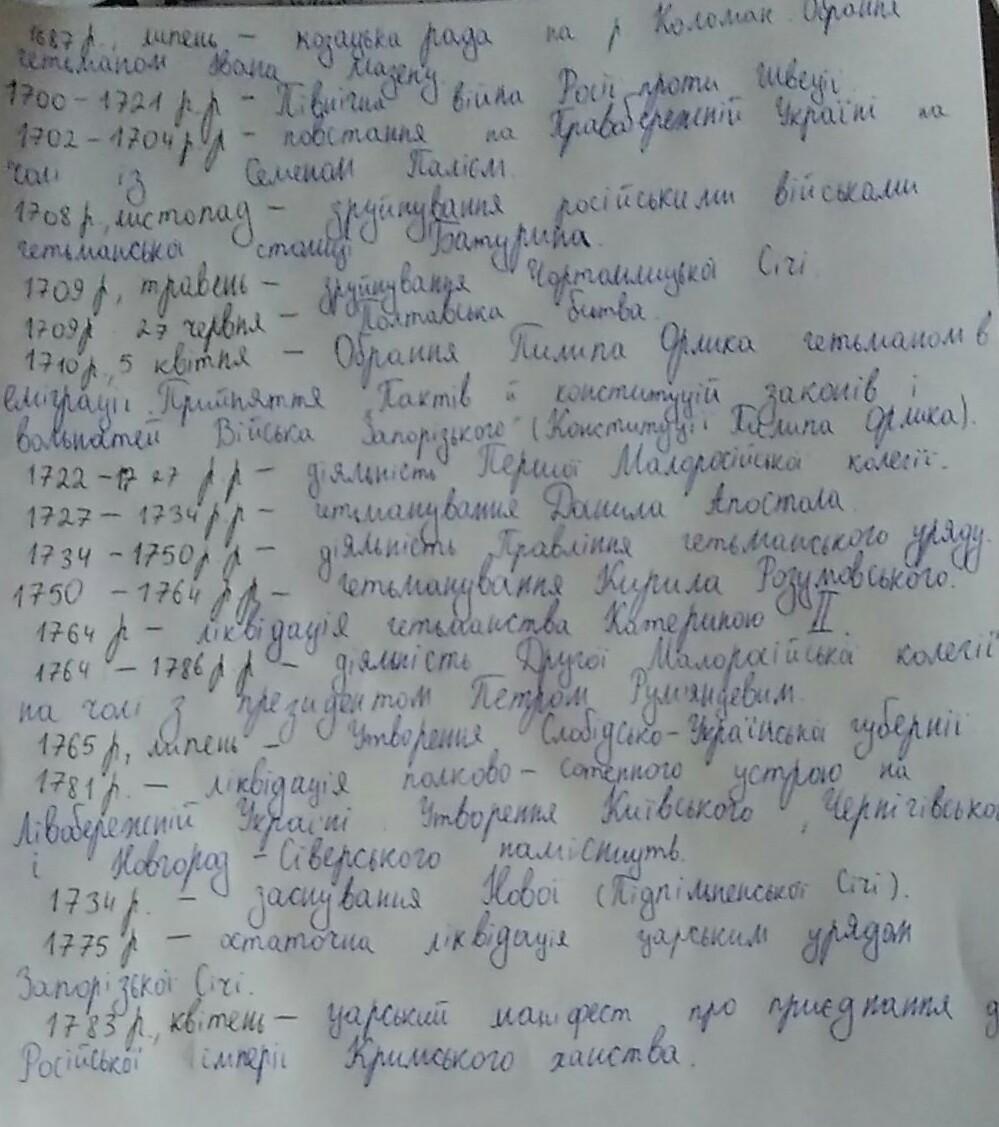 1687 р., липень – козацька рада на р Коломак. Обрання
гетьманом Івана Мазепу.
1700 – 1721 р.р – Північна війна Росії проти Швеції
1702 – 1704 р р – повстання на Правобережній Україні на
чолі із Семеном Палієм.
1708 р., листопад – зруйнування російськими військами
гетьманської столиці Батурина.
1709 р, травень – зруйнування Чортомлицької Січі.
1709 р 27 червня – Полтавська битва.
1710 р., 5 квітня – Обрання Пилипа Орлика гетьманом в
еміграції. Прийняття Пактів й конституцій законів і
вольностей Війська Запорізького (Конституції Пилипа Орлика).
1722 – 17 27 р р – діяльність Першої Малоросійської колегії.
1727 – 1734 р р – гетьманування Данила Апостола.
1734 – 1750 р р – діяльність Правління гетьманського уряду.
1750 – 1764 р р – гетьманування Кирила Розумовського.
1764 р – ліквідація гетьманства Катериною II
1764 – 1786 р р – діяльність Другої Малоросійської колегії
на чолі з президентом Петром Румянцевим.
1765 р, липень – Утворення Слобідсько-Української губернії
1781 р. – ліквідація полково – сотенного устрою на
Лівобережній Україні. Утворення Київського, Чернігівсько
і Новгород – Сіверського намісництв.
1734 р. – заснування Нової (Підпільненської Січі).
1775 р – остаточна ліквідація царським урядом
Запорізької Січі.
1783 р., квітень – царський маніфест про приєднання д
Російської імперії Кримського ханства.